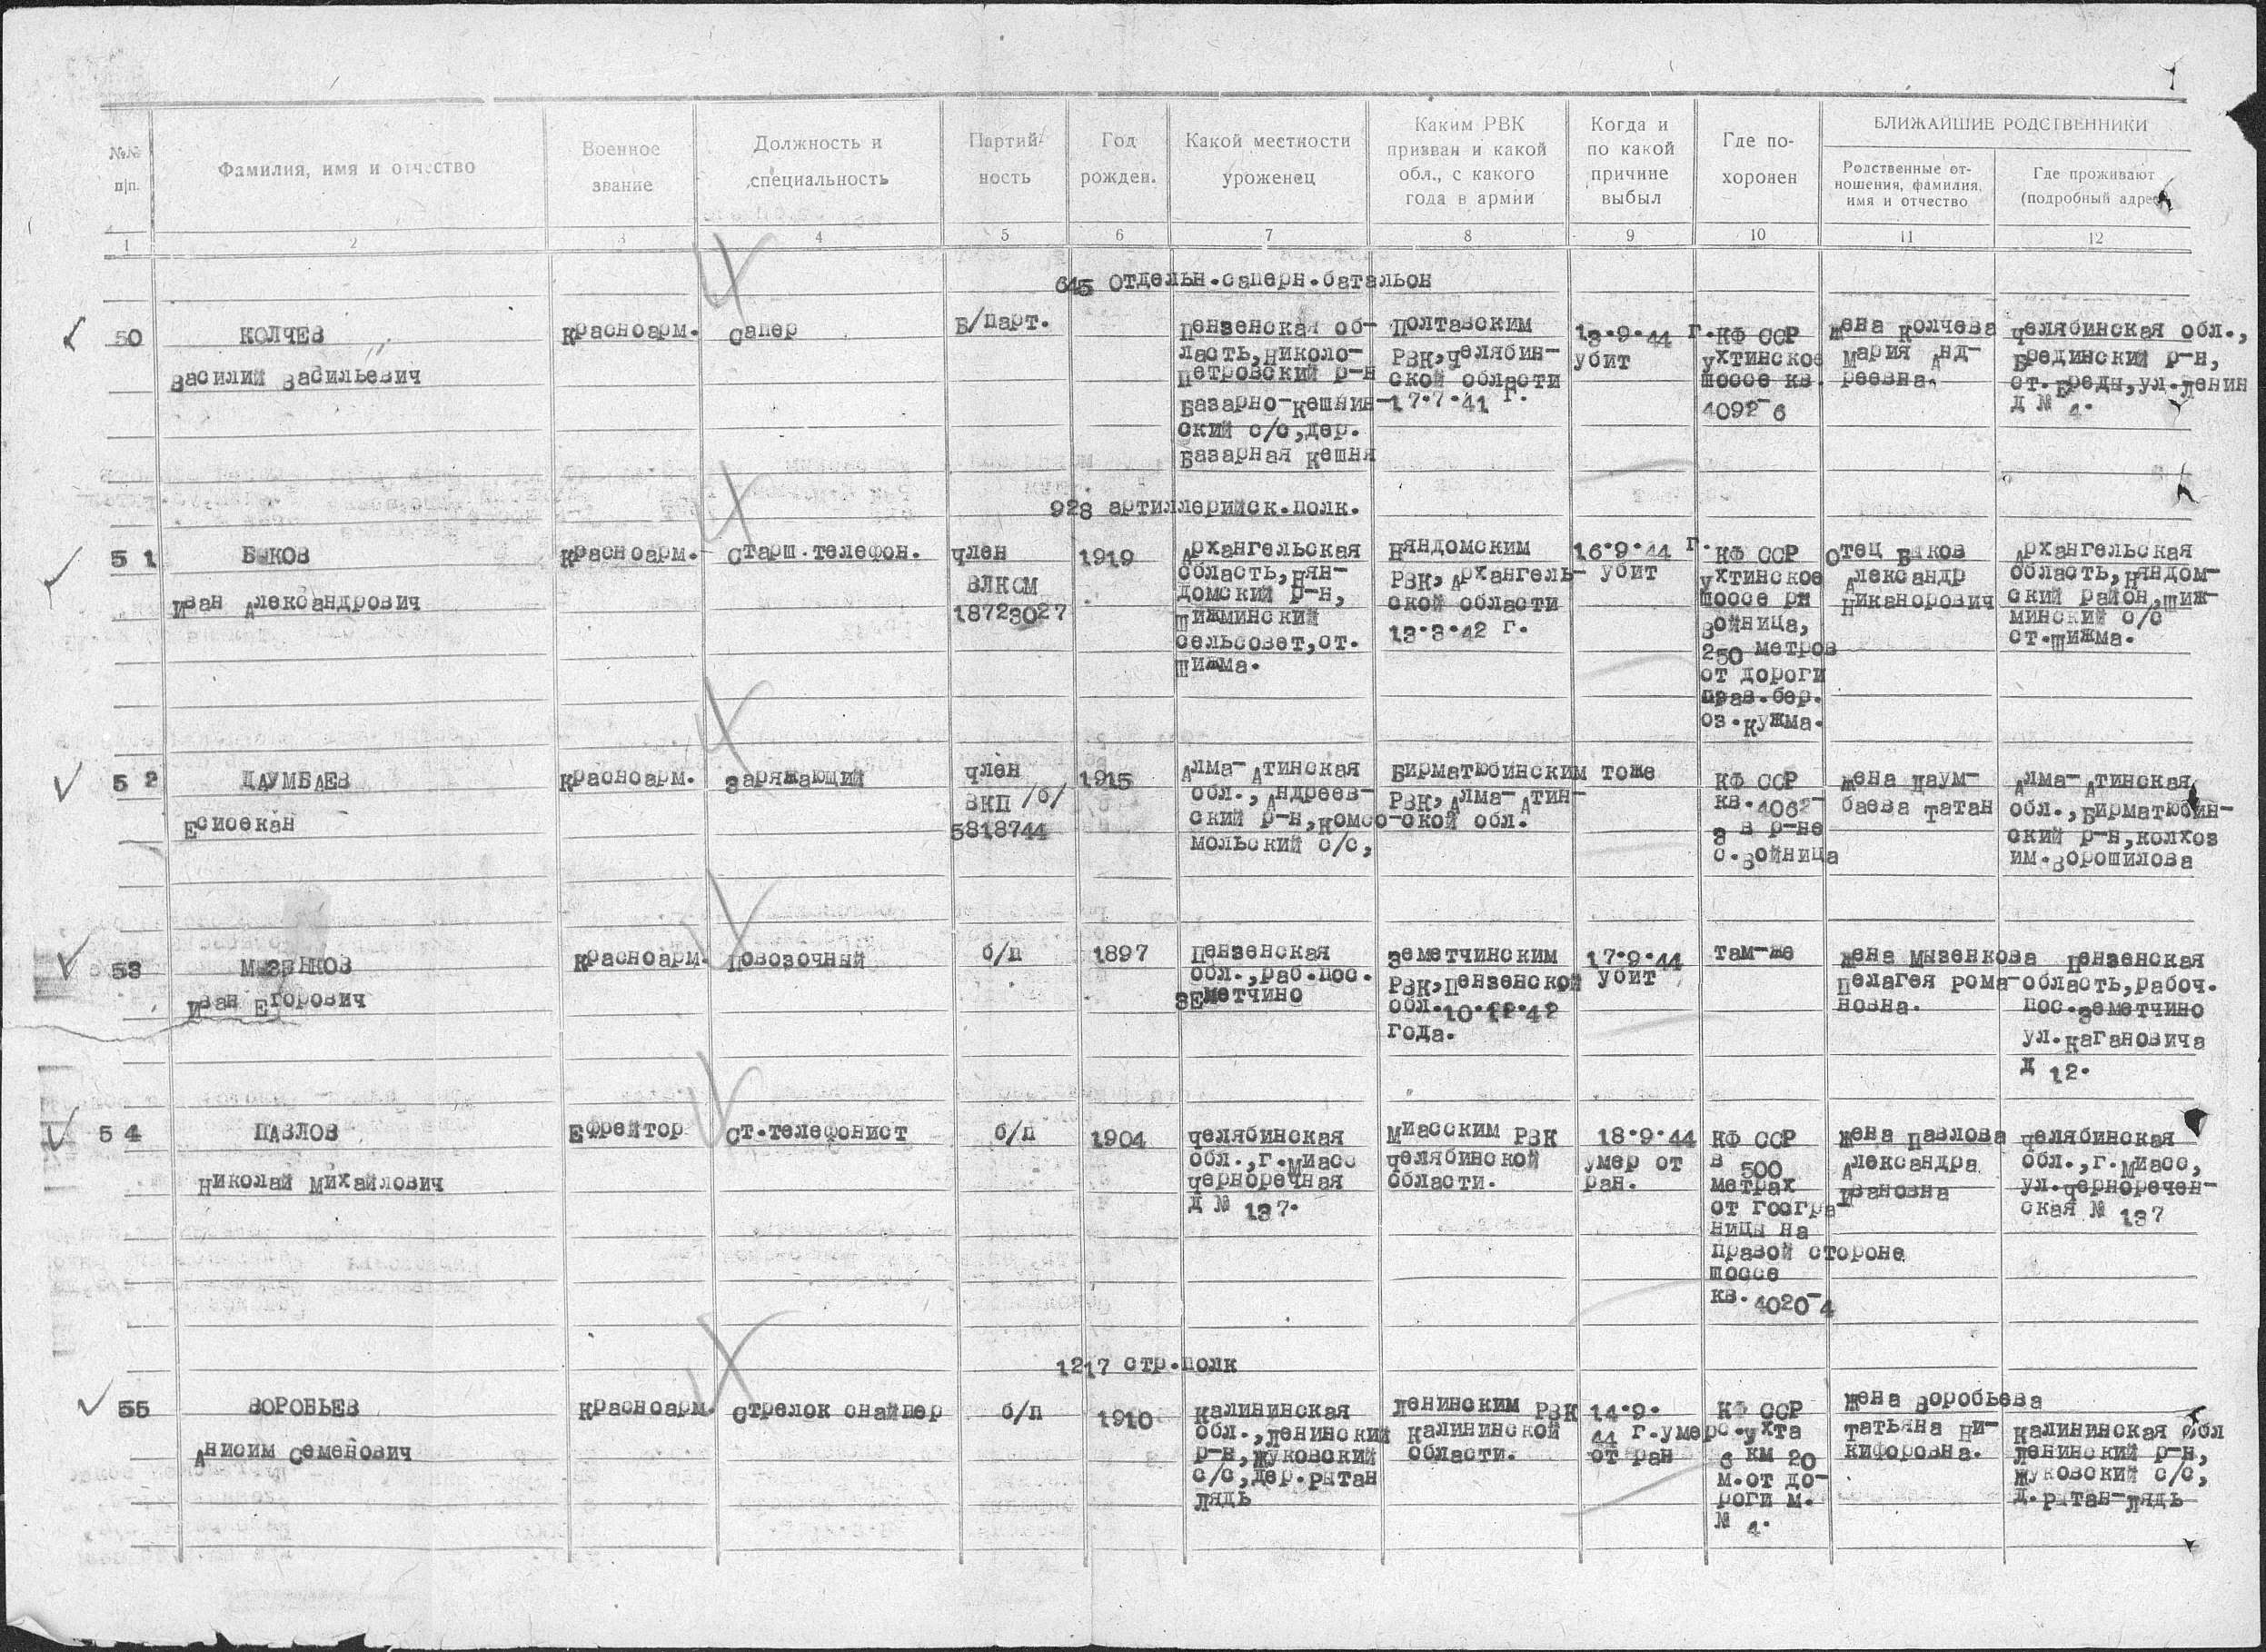 №№ п/п.
Фамилия, имя и отчество
Военное звание
Должность и специальность
Партий- ность
Год рожден.
Какой местности уроженец
Каким РВК призван и какой обл., с какого года в армии
Когда и по какой причине выбыл
Где по- хоронен
БЛИЖАЙШИЕ РОДСТВЕННИКИ
Родственные от- ношения, фамилия, имя и отчество
Где проживают (подробный адрес)
1 2 3 4 5 6 7 8 9 10 11 12
645 Отдельн.саперн.батальон
50
КОЛЧЕВ
Василий Васильевич
Красноарм.
Сапер
Б/парт.
Пензенская об-
ласть,Николо-
Петровский р-н
Базарно-Кешнин-
ский с/с,дер.
Базарная Кешня
Полтавским
РВК,Челябин-
ской области
17.7.41 г.
13.9.44 г.
убит
КФ ССР
Ухтинское
шоссе кв.
4092-6
Жена Колчева
Мария Анд-
реевна.
Челябинская обл.,
Брединский р-н,
ст.Бреды,ул.Ленин
д № 4.
928 артиллерийск.полк.
51
БЫКОВ
Иван Александрович
Красноарм.
Старш.телефон.
член
ВЛКСМ
18723027
1919
Архангельская
область,Нян-
домский р-н,
Шижминский
сельсовет,ст.
Шижма.
Няндомским
РВК,Архангель-
ской области
13.3.42 г.
16.9.44 г.
убит
КФ ССР
Ухтинское
шоссе рн
Войница,
250 метров
от дороги
прав.бер.
оз.Кужма.
Отец Быков
Александр
Никанорович
Архангельская
область,Няндом-
ский район,Шиж-
минский с/с
ст.Шижма.
52
ДАУМБАЕВ
Есисекан
Красноарм.
Заряжающий
член
ВКП /б/
5818744
1915
Алма-Атинская
обл.,Андреев-
ский р-н,Комсо-
мольский с/с,
Бирматюбинским
РВК,Алма-Атин-
ской обл.
тоже
КФ ССР
кв.4062-
3 в р-не
с.Войница
Жена Даум-
баева Татан
Алма-Атинская
обл.,Бирматюбин-
ский р-н,колхоз
им.Ворошилова
53
МЫЗЕНКОВ
Иван Егорович
Красноарм.
Повозочный
б/п
1897
Пензенская
обл.,раб.пос.
ЗЕметчино
Земетчинским
РВК,Пензенской
обл.10.12.42
года.
17.9.44
убит
там-же
Жена Мызенкова
Пелагея Рома-
новна.
Пензенская
область,рабоч.
пос.Земетчино
ул.Кагановича
д 12.
54
ПАВЛОВ
Николай Михайлович
Ефрейтор
Ст.телефонист
б/п
1904
Челябинская
обл.,г.Миасс
Черноречная
д № 137.
Миасским РВК
Челябинской
области.
18.9.44
умер от
ран.
КФ ССР
в 500
метрах
от госгра
ницы на
правой стороне
шоссе
кв.4020-4
Жена Павлова
Александра
Ивановна
Челябинская
обл.,г.Миасс,
ул.Черноречен-
ская № 137
1217 стр.полк
55
ВОРОБЬЕВ
Анисим Семенович
Красноарм.
Стрелок снайпер
б/п
1910
Калининская
обл.,Ленинский
р-н,Жуковский
с/с,дер.Рытан
Лядь
Ленинским РВК
Калининской
области.
14.9.
44 г.умер
от ран
КФ ССР
с.Ухта
6 км 20
м.от до-
роги м.
№ 4.
Жена Воробьева
Татьяна Ни-
кифоровна.
Калининская обл
Ленинский р-н,
Жуковский с/с,
д.Рытан-Лядь